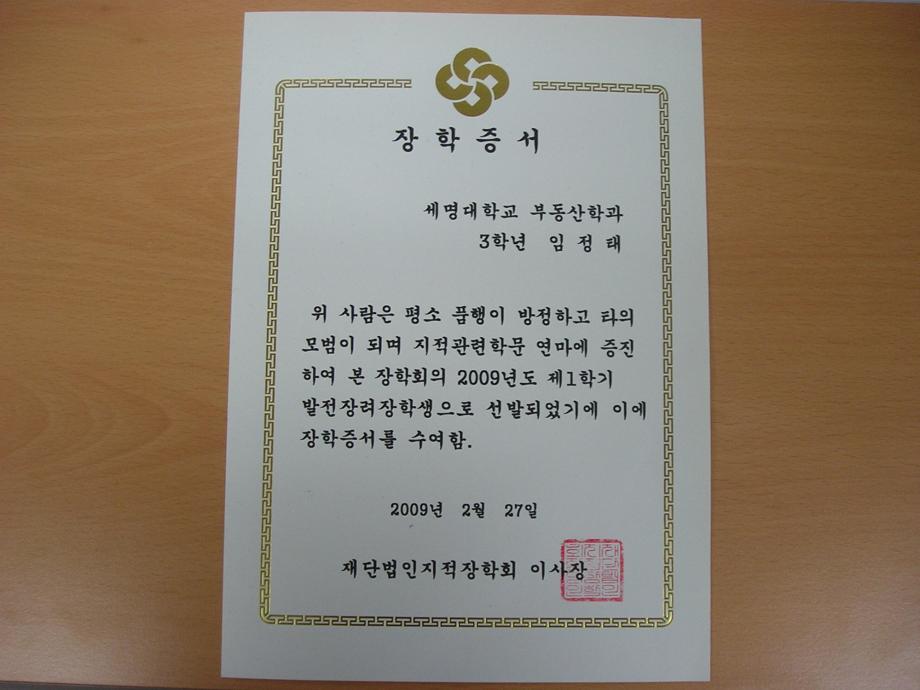 장학증서
세명대학교 부동산학과
3학년 임정태
위 사람은 평소 품행이 방정하고 타의
모범이 되며 지적관련학문 연마에 증진
하여 본 장학회의 2009년도 제1학기
발전장려장학생으로 선발되었기에 이에
장학증서를 수여함.
2009년 2월 27일
재단법인지적장학회 이사장